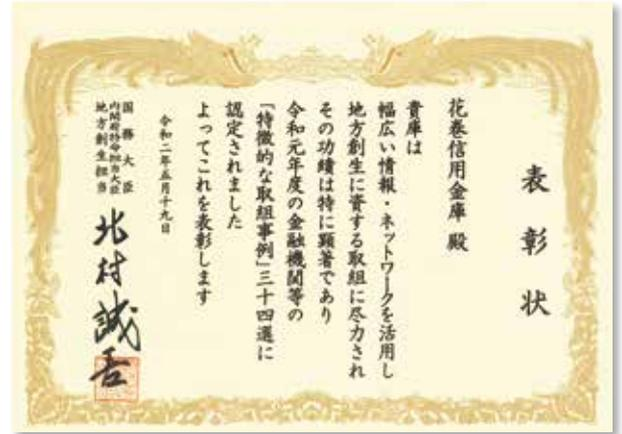 表彰状
花巻信用金庫 殿
貴庫は
幅広い情報・ネットワークを活用し
地方創生に資する取組に尽力され
その功績は特に顕著であり
令和元年度の金融機関等の
「特徴的な取組事例」三十四選に
認定されました
よってこれを表彰します
令和二年五月十九日
国務大臣
内閣府特命担当大臣
地方創生担当
北村誠吾